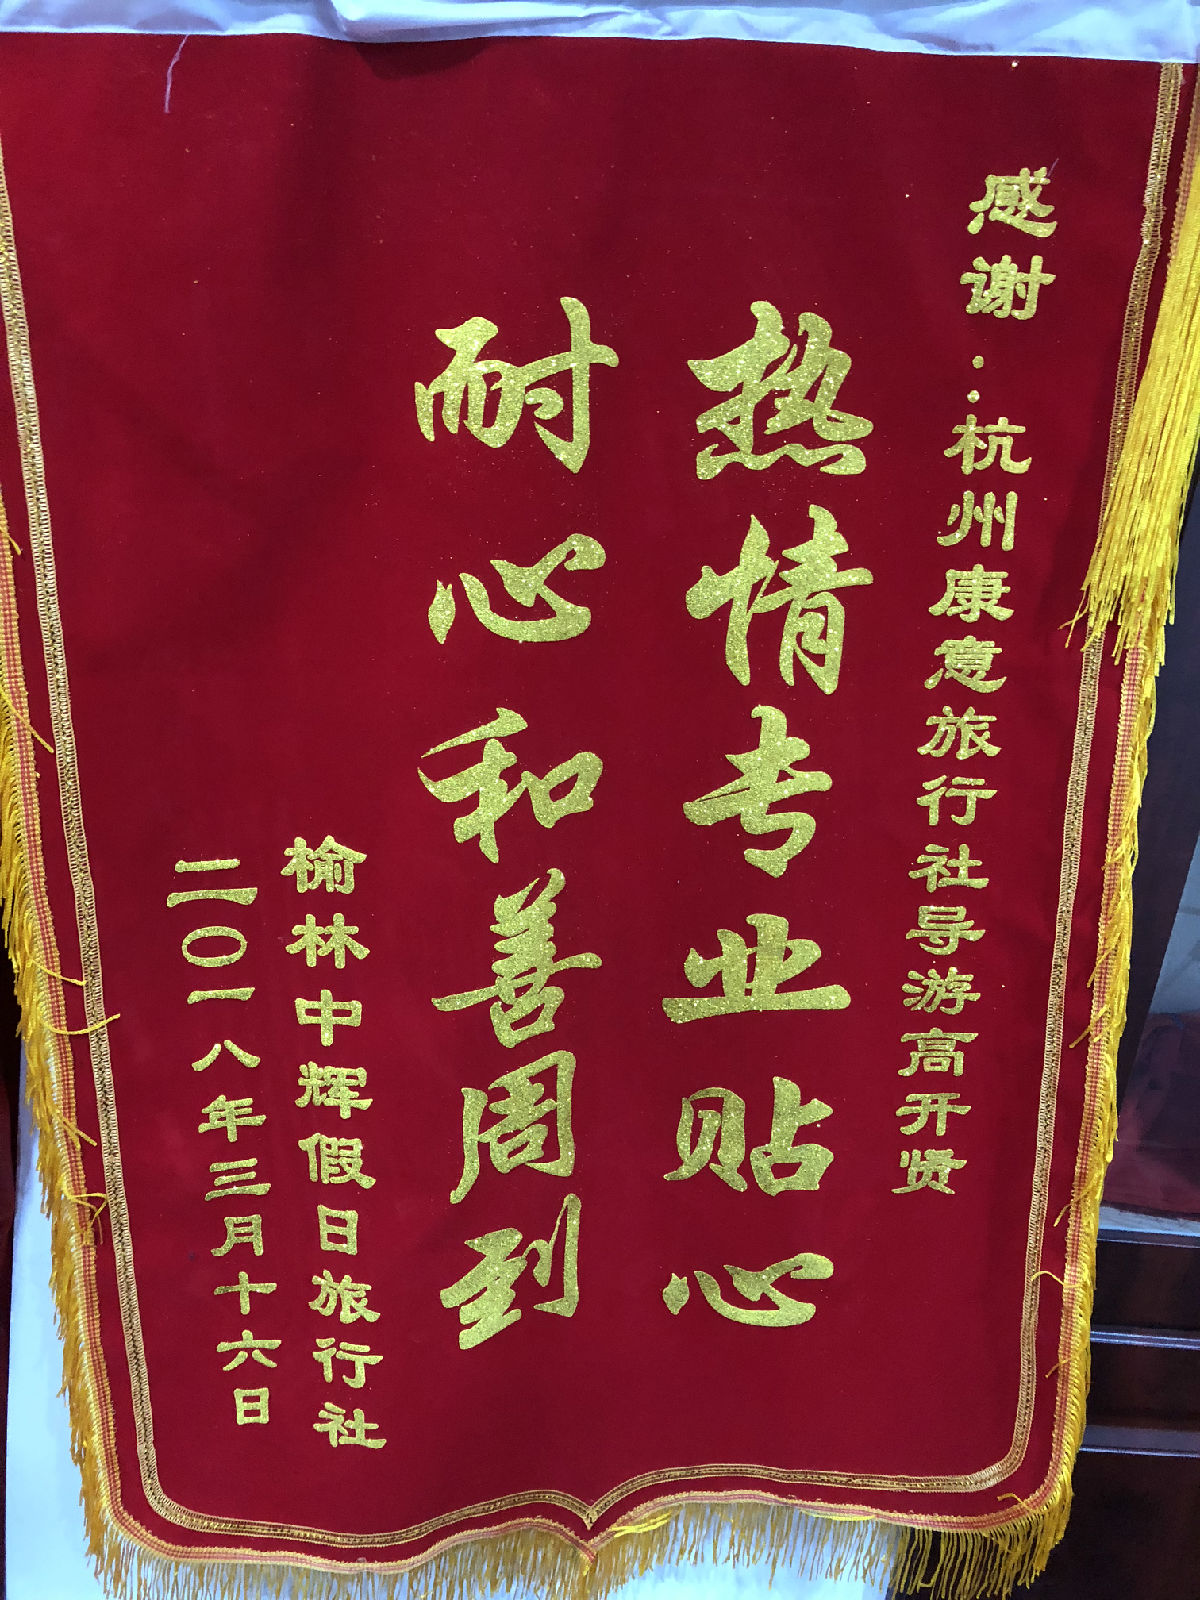 感谢：杭州康意旅行社导游高开贤
热情专业贴心
耐心和善周到
榆林中辉假日旅行社
二〇一八年三月十六日